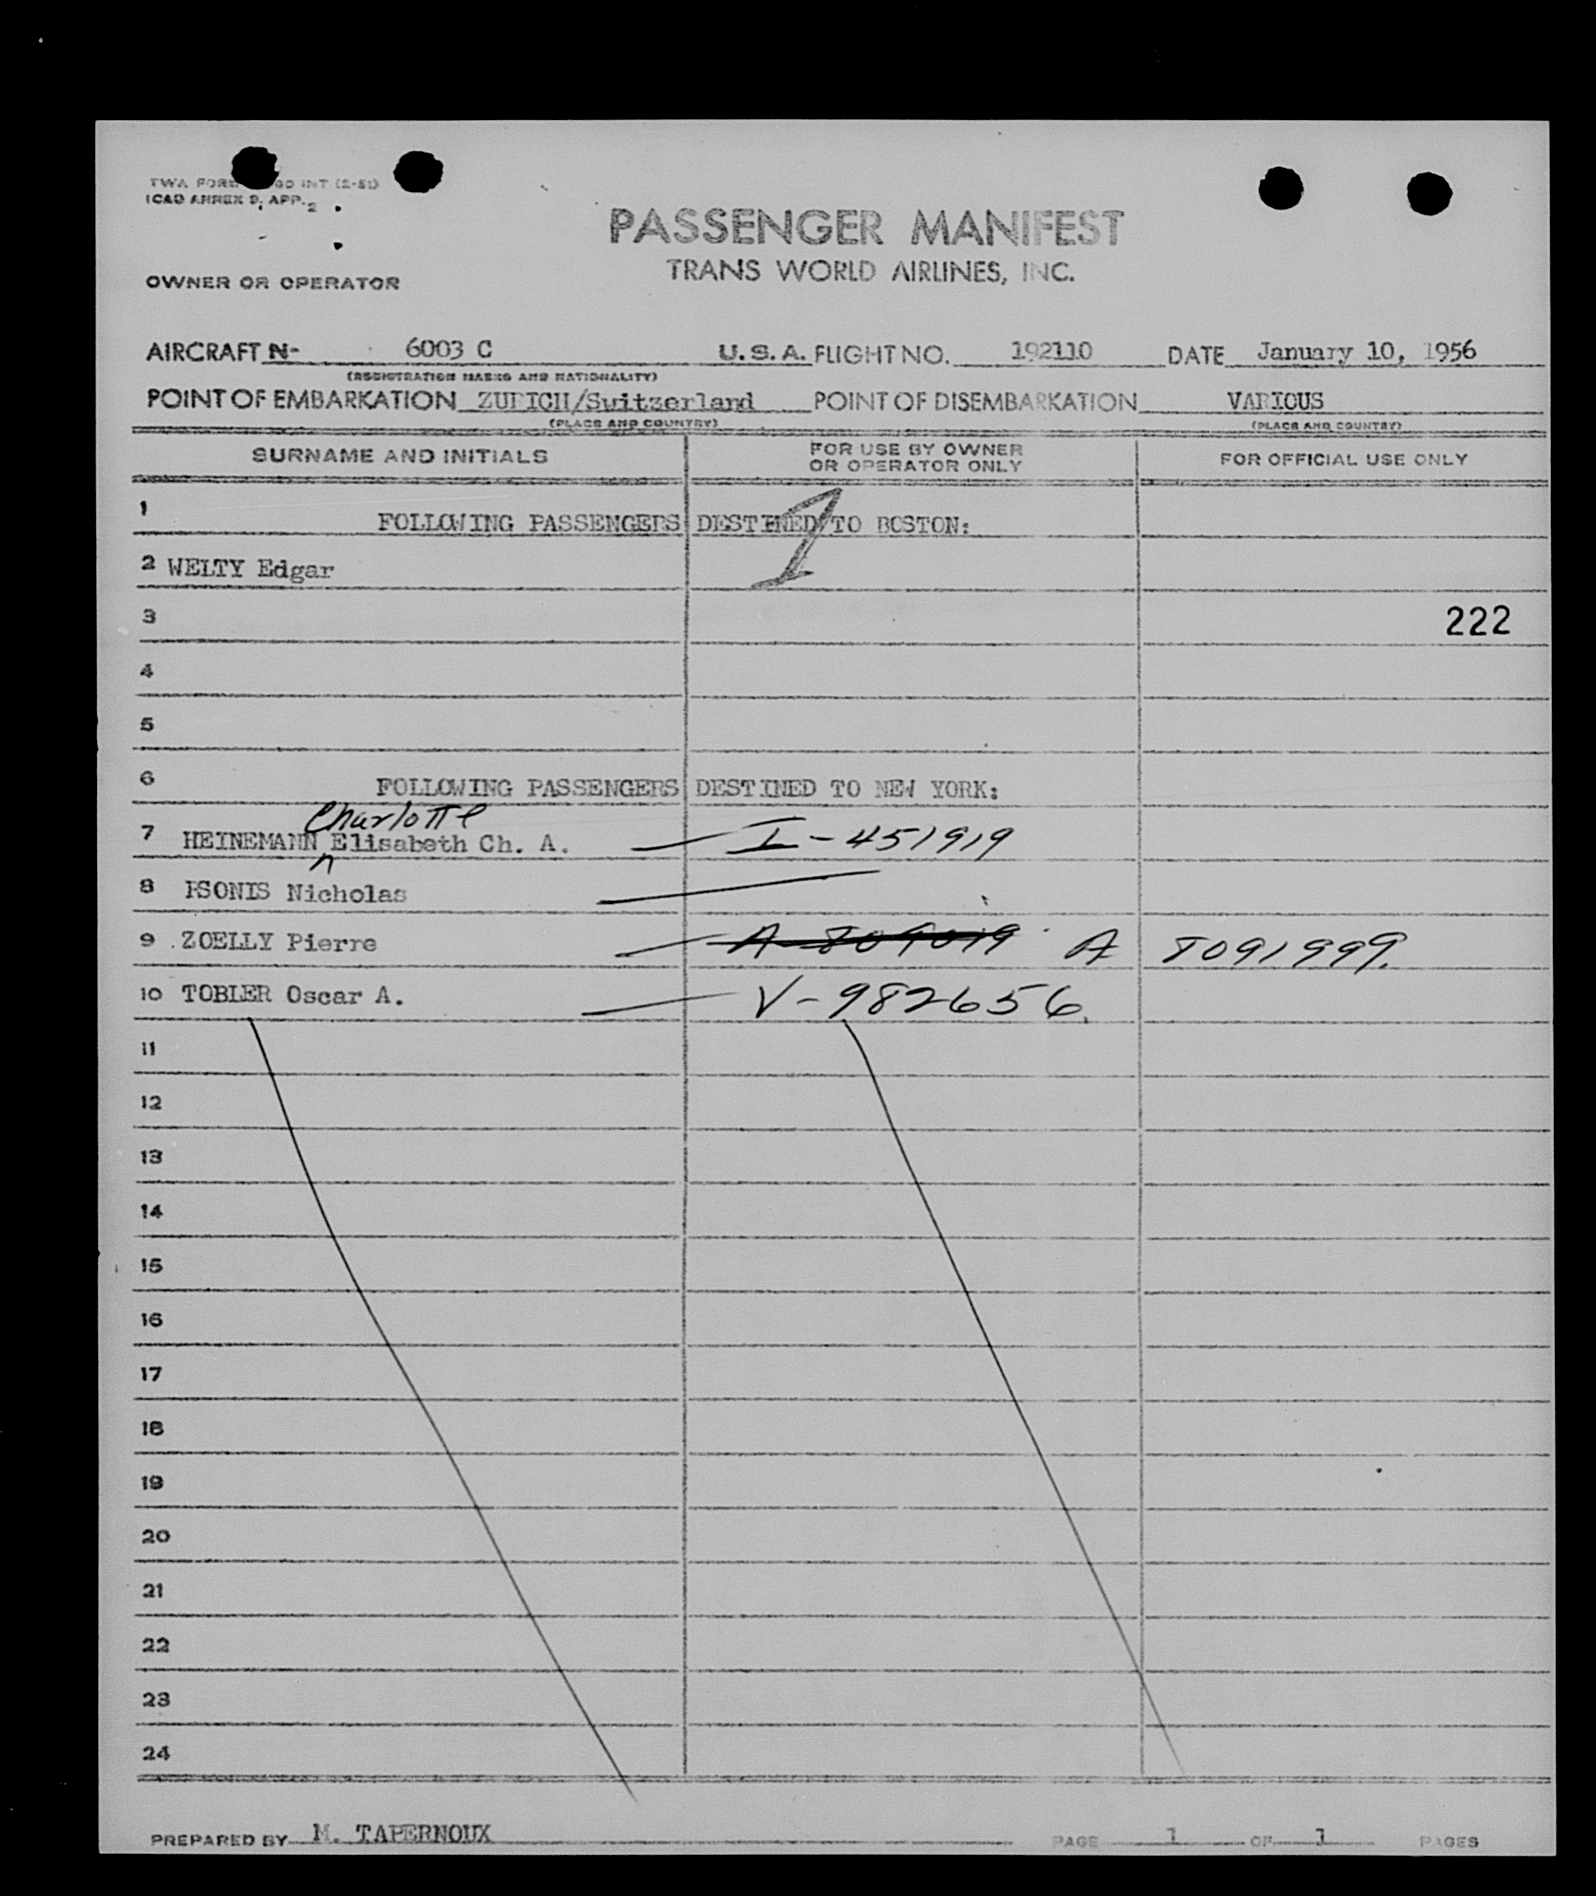 TWA FORM INT (2-51)
ICAO ANNEX 9, APP. 2
PASSENGER MANIFEST
TRANS WORLD AIRLINES, INC.
OWNER OR OPERATOR
AIRCRAFT N- 6003 C U.S.A. FLIGHT NO. 192110 DATE January 10, 1956
(REGISTRATION MARKS AND NATIONALITY)
POINT OF EMBARKATION ZURICH/Switzerland POINT OF DISEMBARKATION VARIOUS
(PLACE AND COUNTRY) (PLACE AND COUNTRY)
SURNAME AND INITIALS FOR USE BY OWNER OR OPERATOR ONLY FOR OFFICIAL USE ONLY
1 FOLLOWING PASSENGERS DESTINED TO BOSTON:
1
2 WELTY Edgar
3 222
4
5
6 FOLLOWING PASSENGERS DESTINED TO NEW YORK:
Charlotte
7 HEINEMANN Elisabeth Ch. A. I-451919
8 PSONIS Nicholas
9 ZOELLY Pierre A 809019 A 8091999.
10 TOBLER Oscar A. V-982656.
11
12
13
14
15
16
17
18
19
20
21
22
23
24
PREPARED BY M. TAPERNOUX PAGE 1 OF 1 PAGES